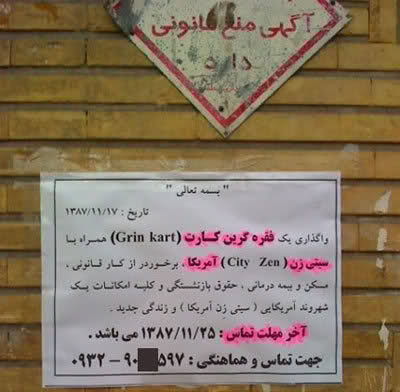 آگهی منع قانونی
دارد
" بسمه تعالی "
تاریخ : ۱۳۸۷/۱۱/۱۷
واگذاری یک فقره گرین کارت (Grin kart) همراه با
سیتی زن ( City Zen ) آمریکا ، برخوردر از کار قانونی ،
مسکن و بیمه درمانی ، حقوق بازنشستگی و کلیه امکانات یک
شهروند آمریکایی ( سیتی زن آمریکا ) و زندگی جدید .
آخر مهلت تماس : ۱۳۸۷/۱۱/۲۵ می باشد .
جهت تماس و هماهنگی : ۵۹۷ ۹۰ – ۰۹۳۲